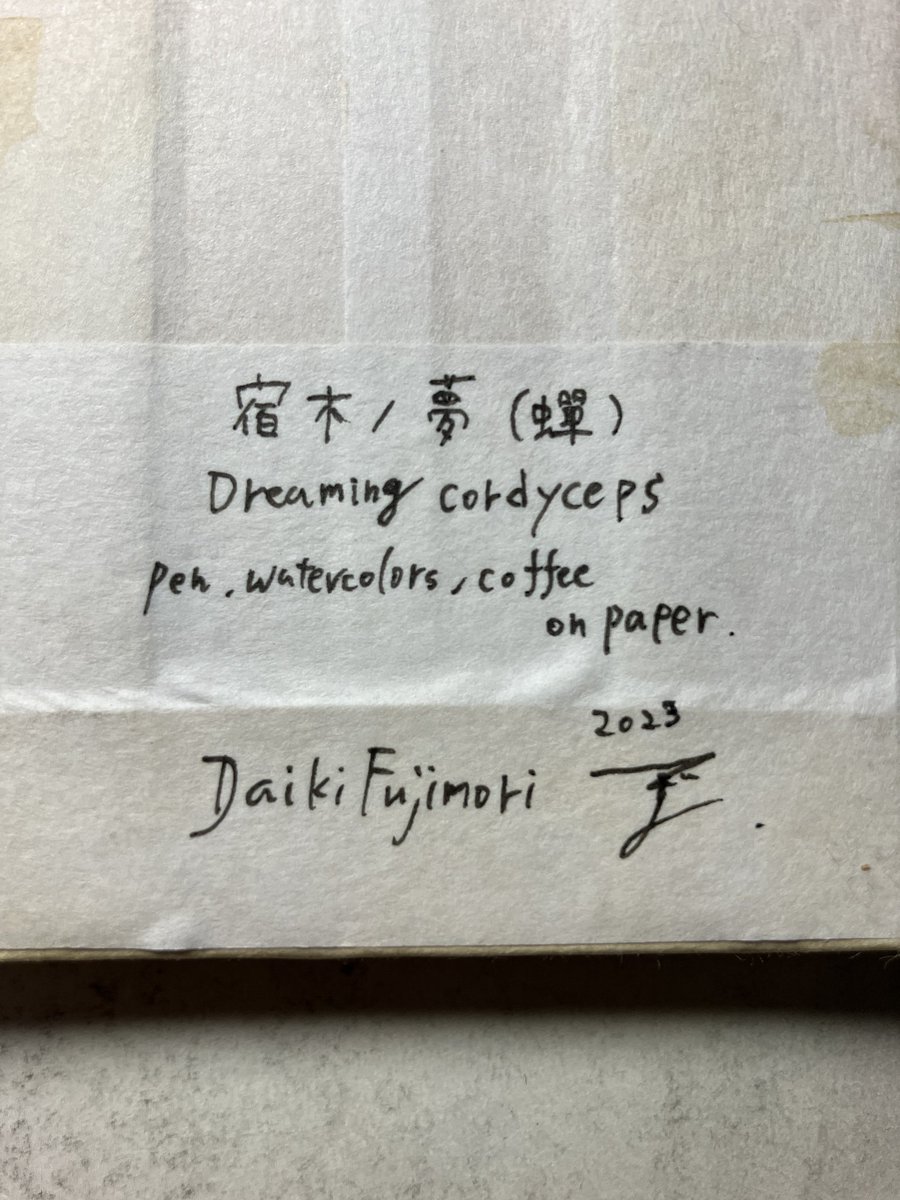 宿木ノ夢(蟬)
Dreaming cordyceps
pen, watercolors, coffee
on paper.
2023
Daiki Fujimori